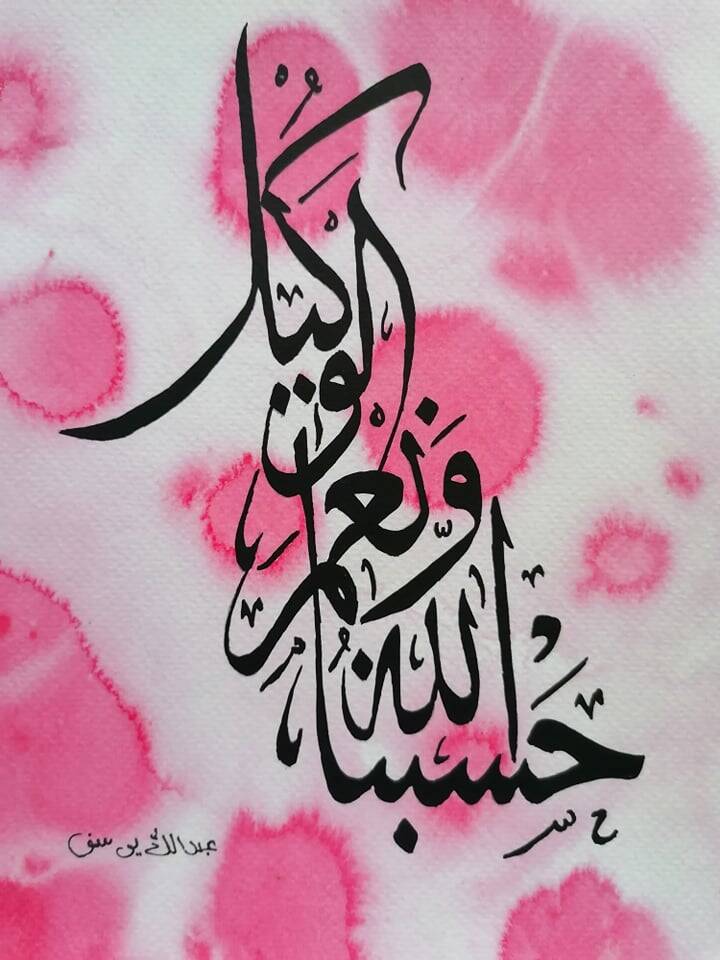 حسبنا الله ونعم الوكيل
عبدالله يوسف